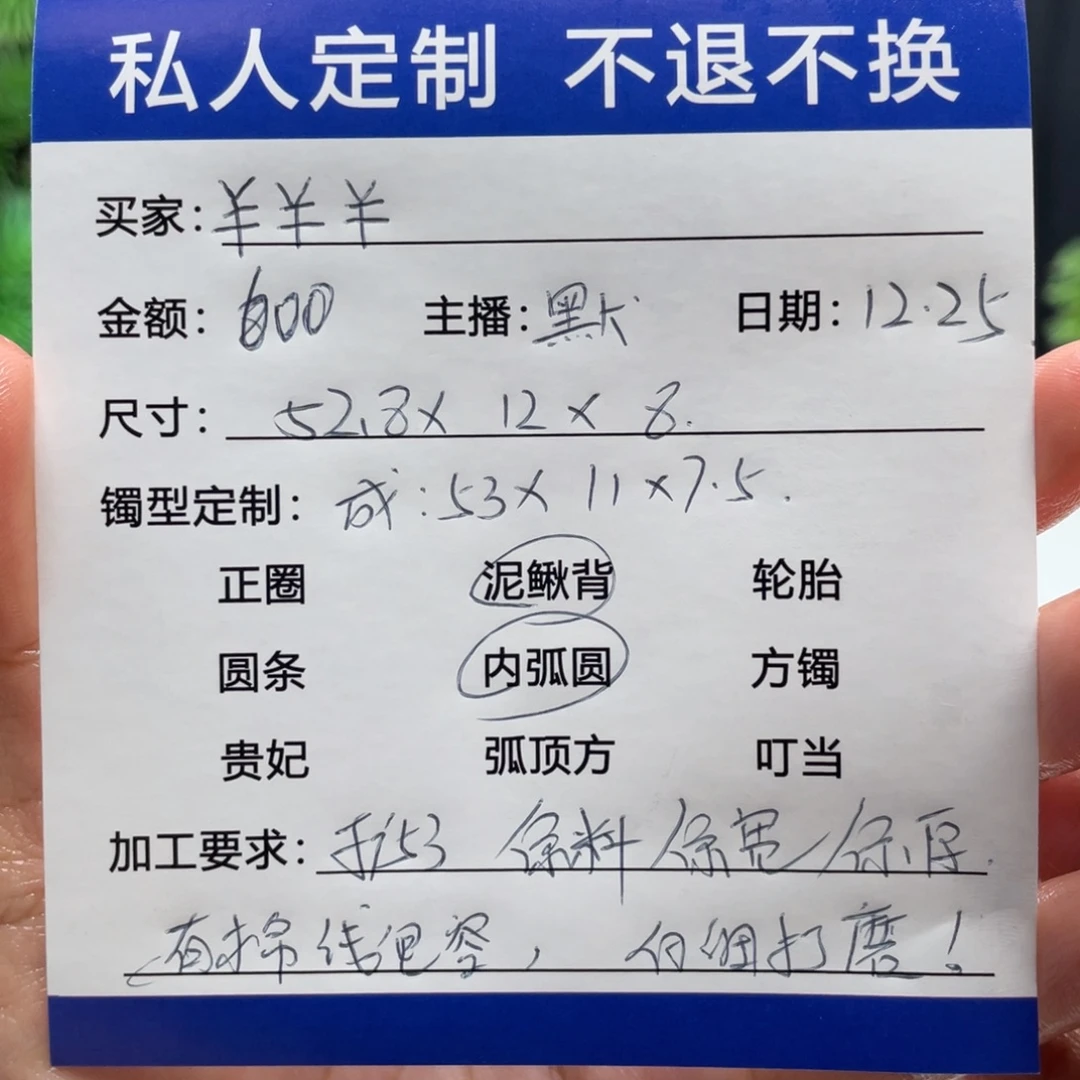 私人定制 不退不换
买家：羊羊羊
金额：600 主播：默 日期：12.25
尺寸：52.8x 12 x 8.
镯型定制：成：53x 11 x7.5.
正圈 泥鳅背 轮胎
圆条 内弧圆 方镯
贵妃 弧顶方 叮当
加工要求：打53 保料 保宽 保厚.
有棉线包容， 仔细打磨！